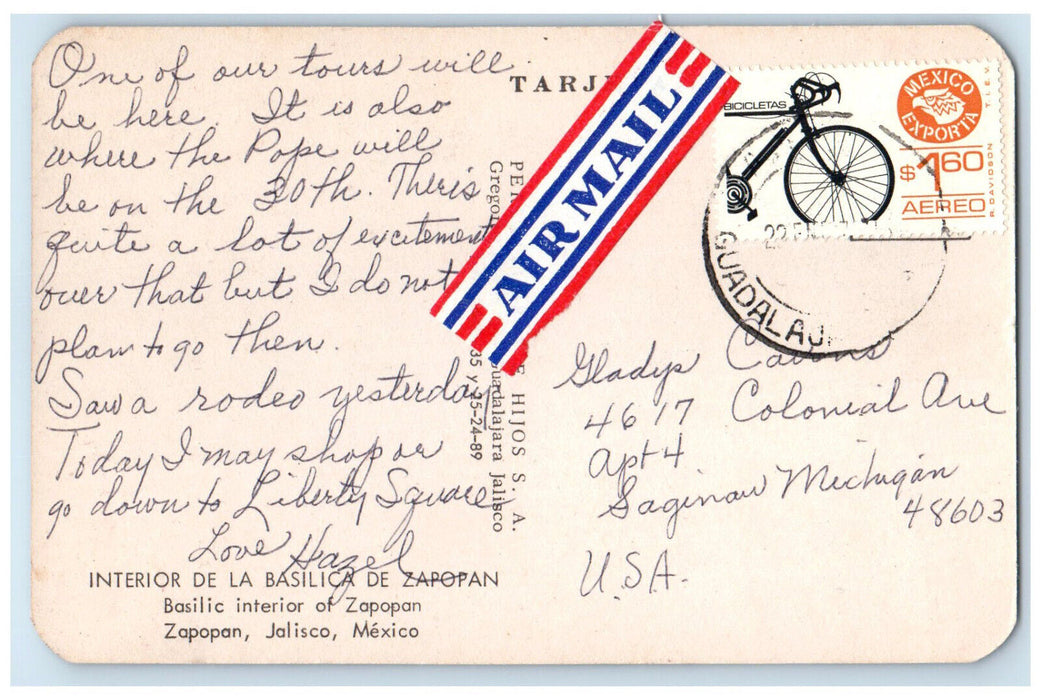 One of our tours will
be here. It is also
where the Pope will
be on the 30th. Theris
quite a lot of excitement
over that but I do not
plan to go then.
Saw a rodeo yesterday
Today I may shop or
go down to Liberty Square
Love Hazel
INTERIOR DE LA BASILICA DE ZAPOPAN
Basilic interior of Zapopan
Zapopan, Jalisco, México
TARJ
AIR MAIL
HIJOS S. A.
Guadalajara Jalisco
35 y 25-24-89
BICICLETAS
MEXICO
EXPORTA
T.I.E.V.
$1.60
AEREO
R. DAVIDSON
GUADALAJ
Gladys
4617 Colonial Ave
Apt 4
Saginaw Michigan
48603
U.S.A.